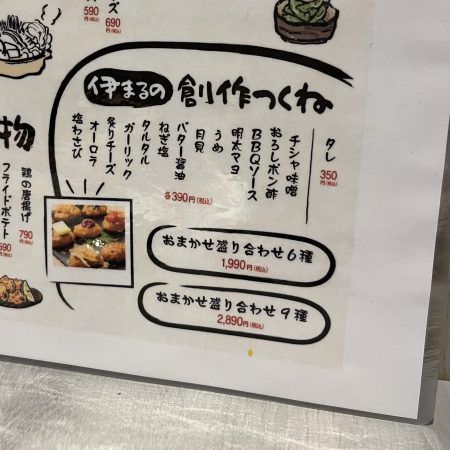 590
円(税込)
ズ
690
円(税込)
伊まるの 創作つくね
タレ
350
円(税込)
チシャ味噌
おろしポン酢
BBQソース
明太マヨ
うめ
月見
バター醤油
ねぎ塩
タルタル
ガーリック
炙りチーズ
オーロラ
塩わさび
各390円(税込)
おまかせ盛り合わせ6種
1,990円(税込)
おまかせ盛り合わせ9種
2,890円(税込)
物
鶏の唐揚げ
790
円(税込)
フライドポテト
590
円(税込)